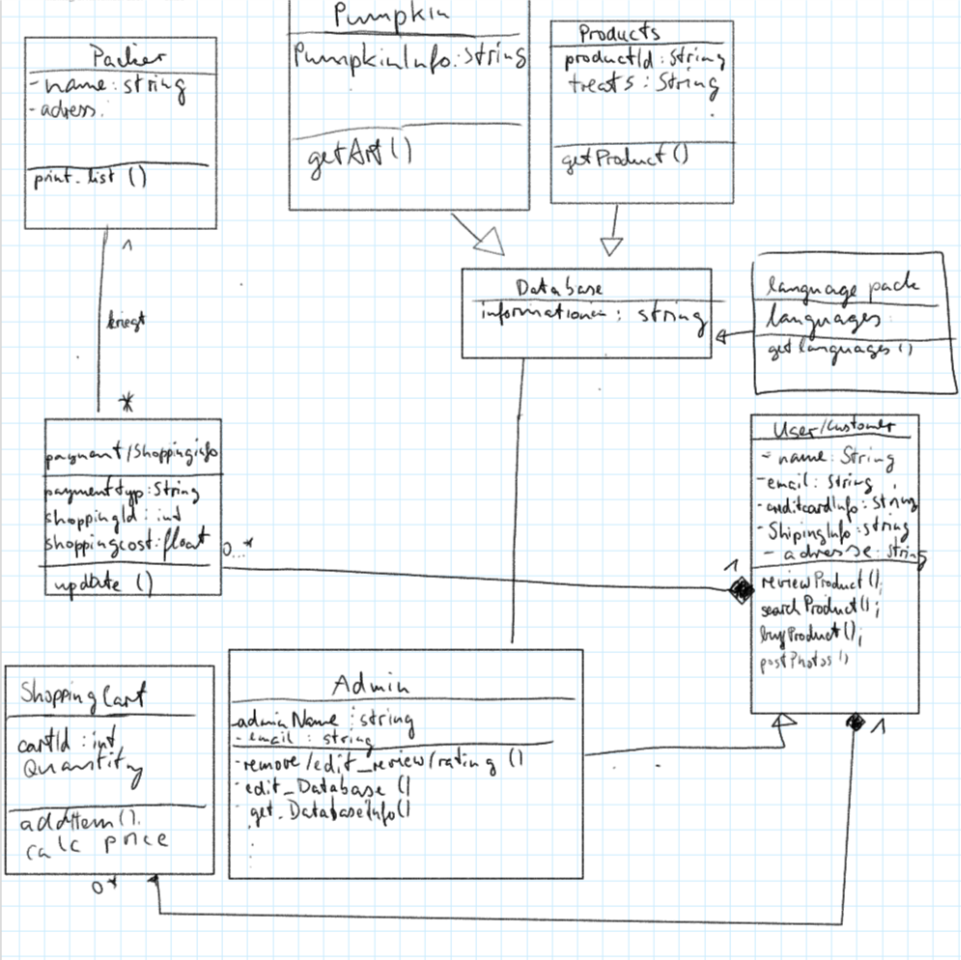 Packer
-name: string
-adress:
print_list ()
Pumpkin
PumpkinInfo: String
getArt()
Products
productId: String
treats: String
getProduct()
1
kriegt
*
Database
: string
language pack
languages
getlanguages()
payment/Shoppinginfo
paymenttyp: String
shoppingId: int
shoppingcost: float
update ()
0...*
1
User/Customer
- name: String
-email: String
-creditcardInfo: String
-ShipingInfo: String
- adresse: String
reviewProduct();
searchProduct();
buyProduct();
postPhotos()
ShoppingCart
cartId: int
Quantity
addItem().
calc price
0*
Admin
-adminName: string
-email: string
-remove/edit_review/rating ()
-edit_Database ()
get_DatabaseInfo()
1